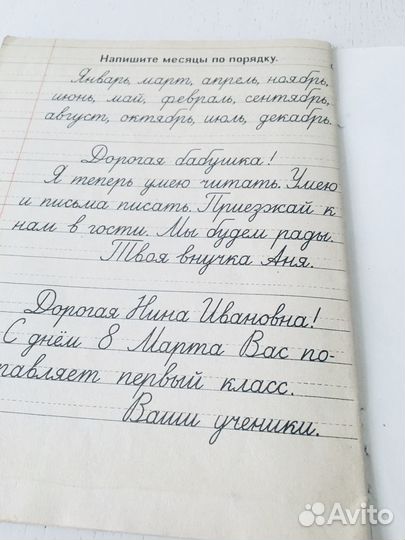 Напишите месяцы по порядку.
Январь, март, апрель, ноябрь,
июнь, май, февраль, сентябрь,
август, октябрь, июль, декабрь.
Дорогая бабушка!
Я теперь умею читать. Умею
и письма писать. Приезжай к
нам в гости. Мы будем рады.
Твоя внучка Аня.
Дорогая Нина Ивановна!
С днём 8 Марта Вас по-
тавляет первый класс.
Ваши ученики.
Avito